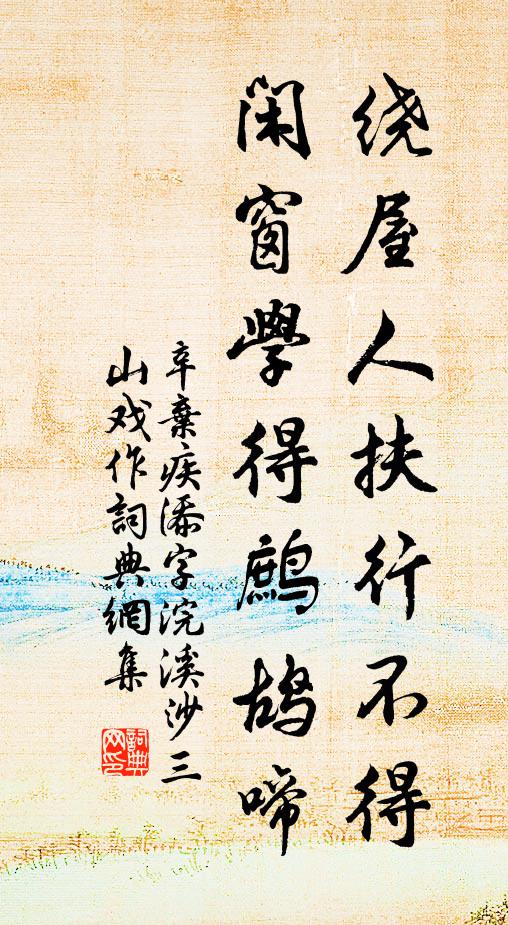 绕屋人扶行不得
闲窗學得鹧鸪啼
辛棄疾添字浣溪沙三
山戏作詞典網集
詞典
网印